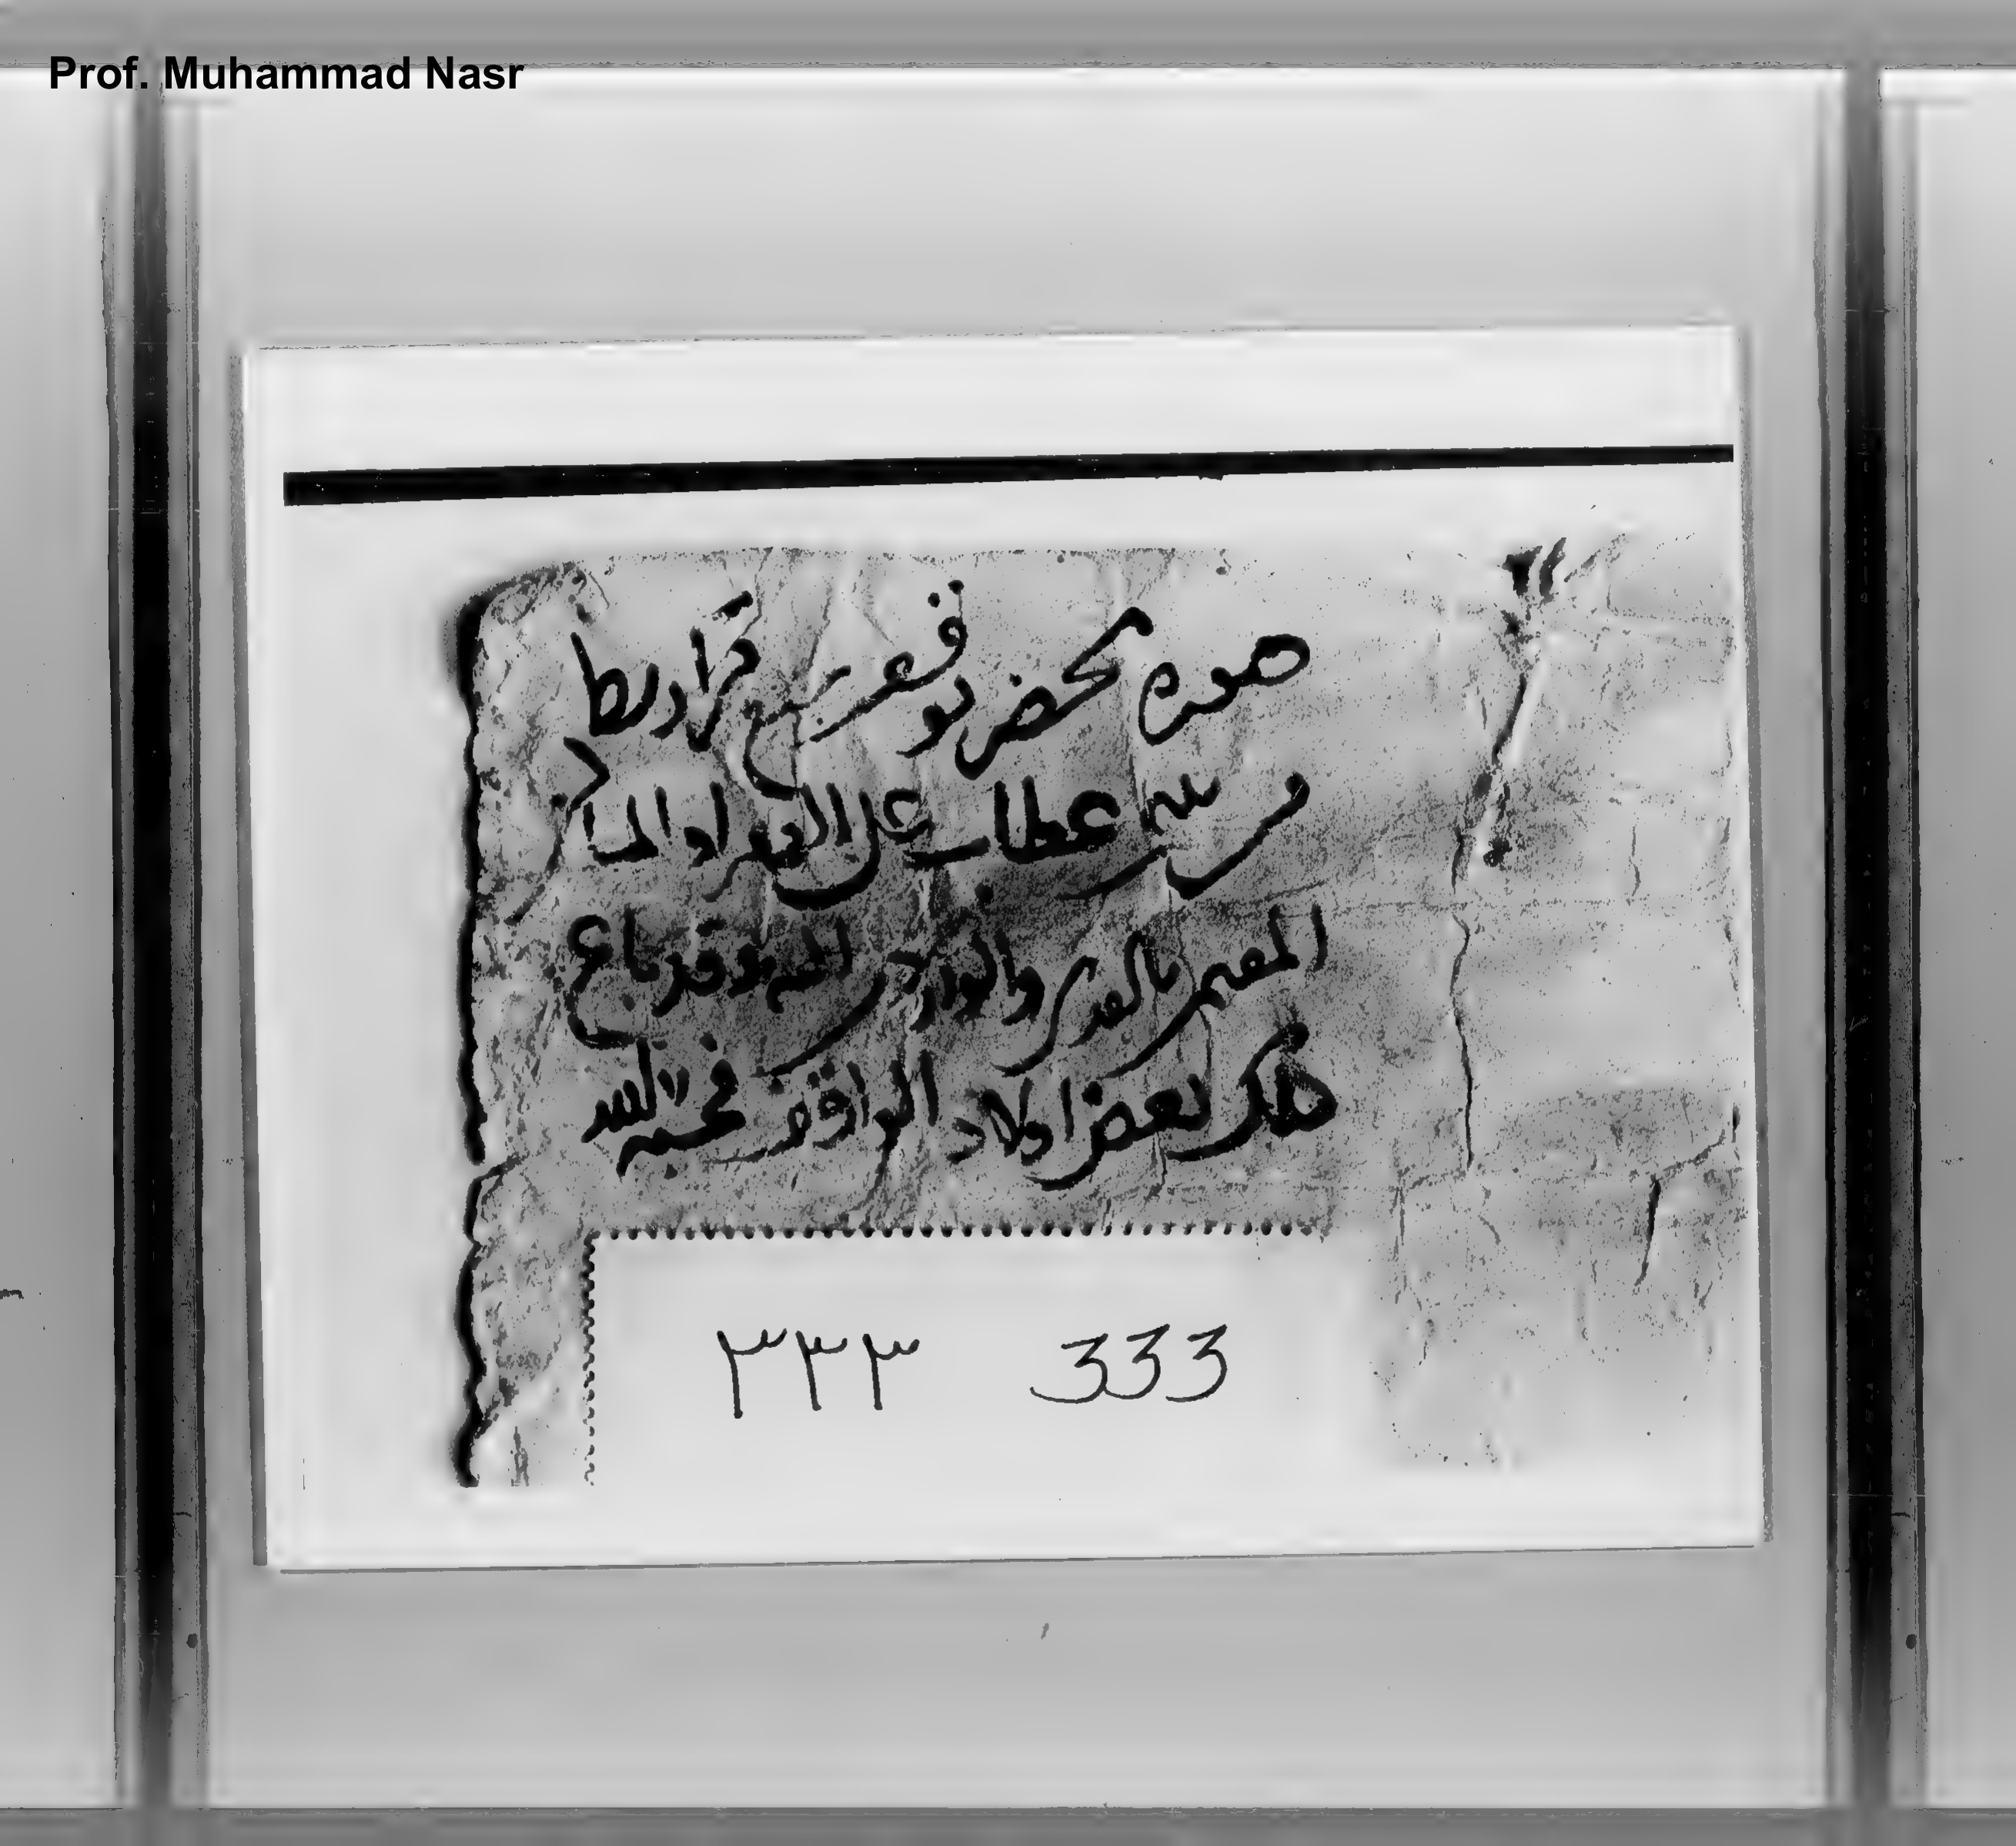 Prof. Muhammad Nasr
صورة محضر بوقف سبع قراريط
من عطاب على الفقراء والمسا
المقيمين بالقدس والواردين اليه وقد باع
ذلك بعض اولاد الواقف فحسبه الله
٣٣٣ 333